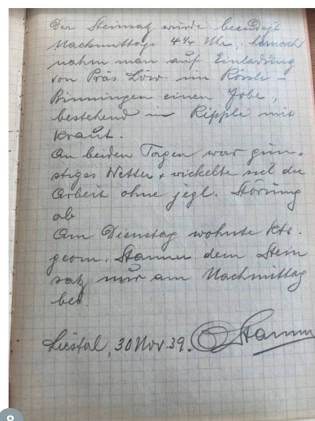 Der Steinsatz wurde beendigt
Nachmittags 4¼ Uhr, hernach
nahm man auf Einladung
von Präs. Löw im Rössli-
Binningen einen Imbiss,
bestehend in Rippli mit
Kraut.
An beiden Tagen war gün-
stiges Wetter & wickelte sich die
Arbeit ohne jegl. Störung
ab
Am Dienstag wohnte Kts.
geom. Stamm dem Stein
satz nur am Nachmittag
bei.
Liestal, 30 Nov 39. Stamm
8